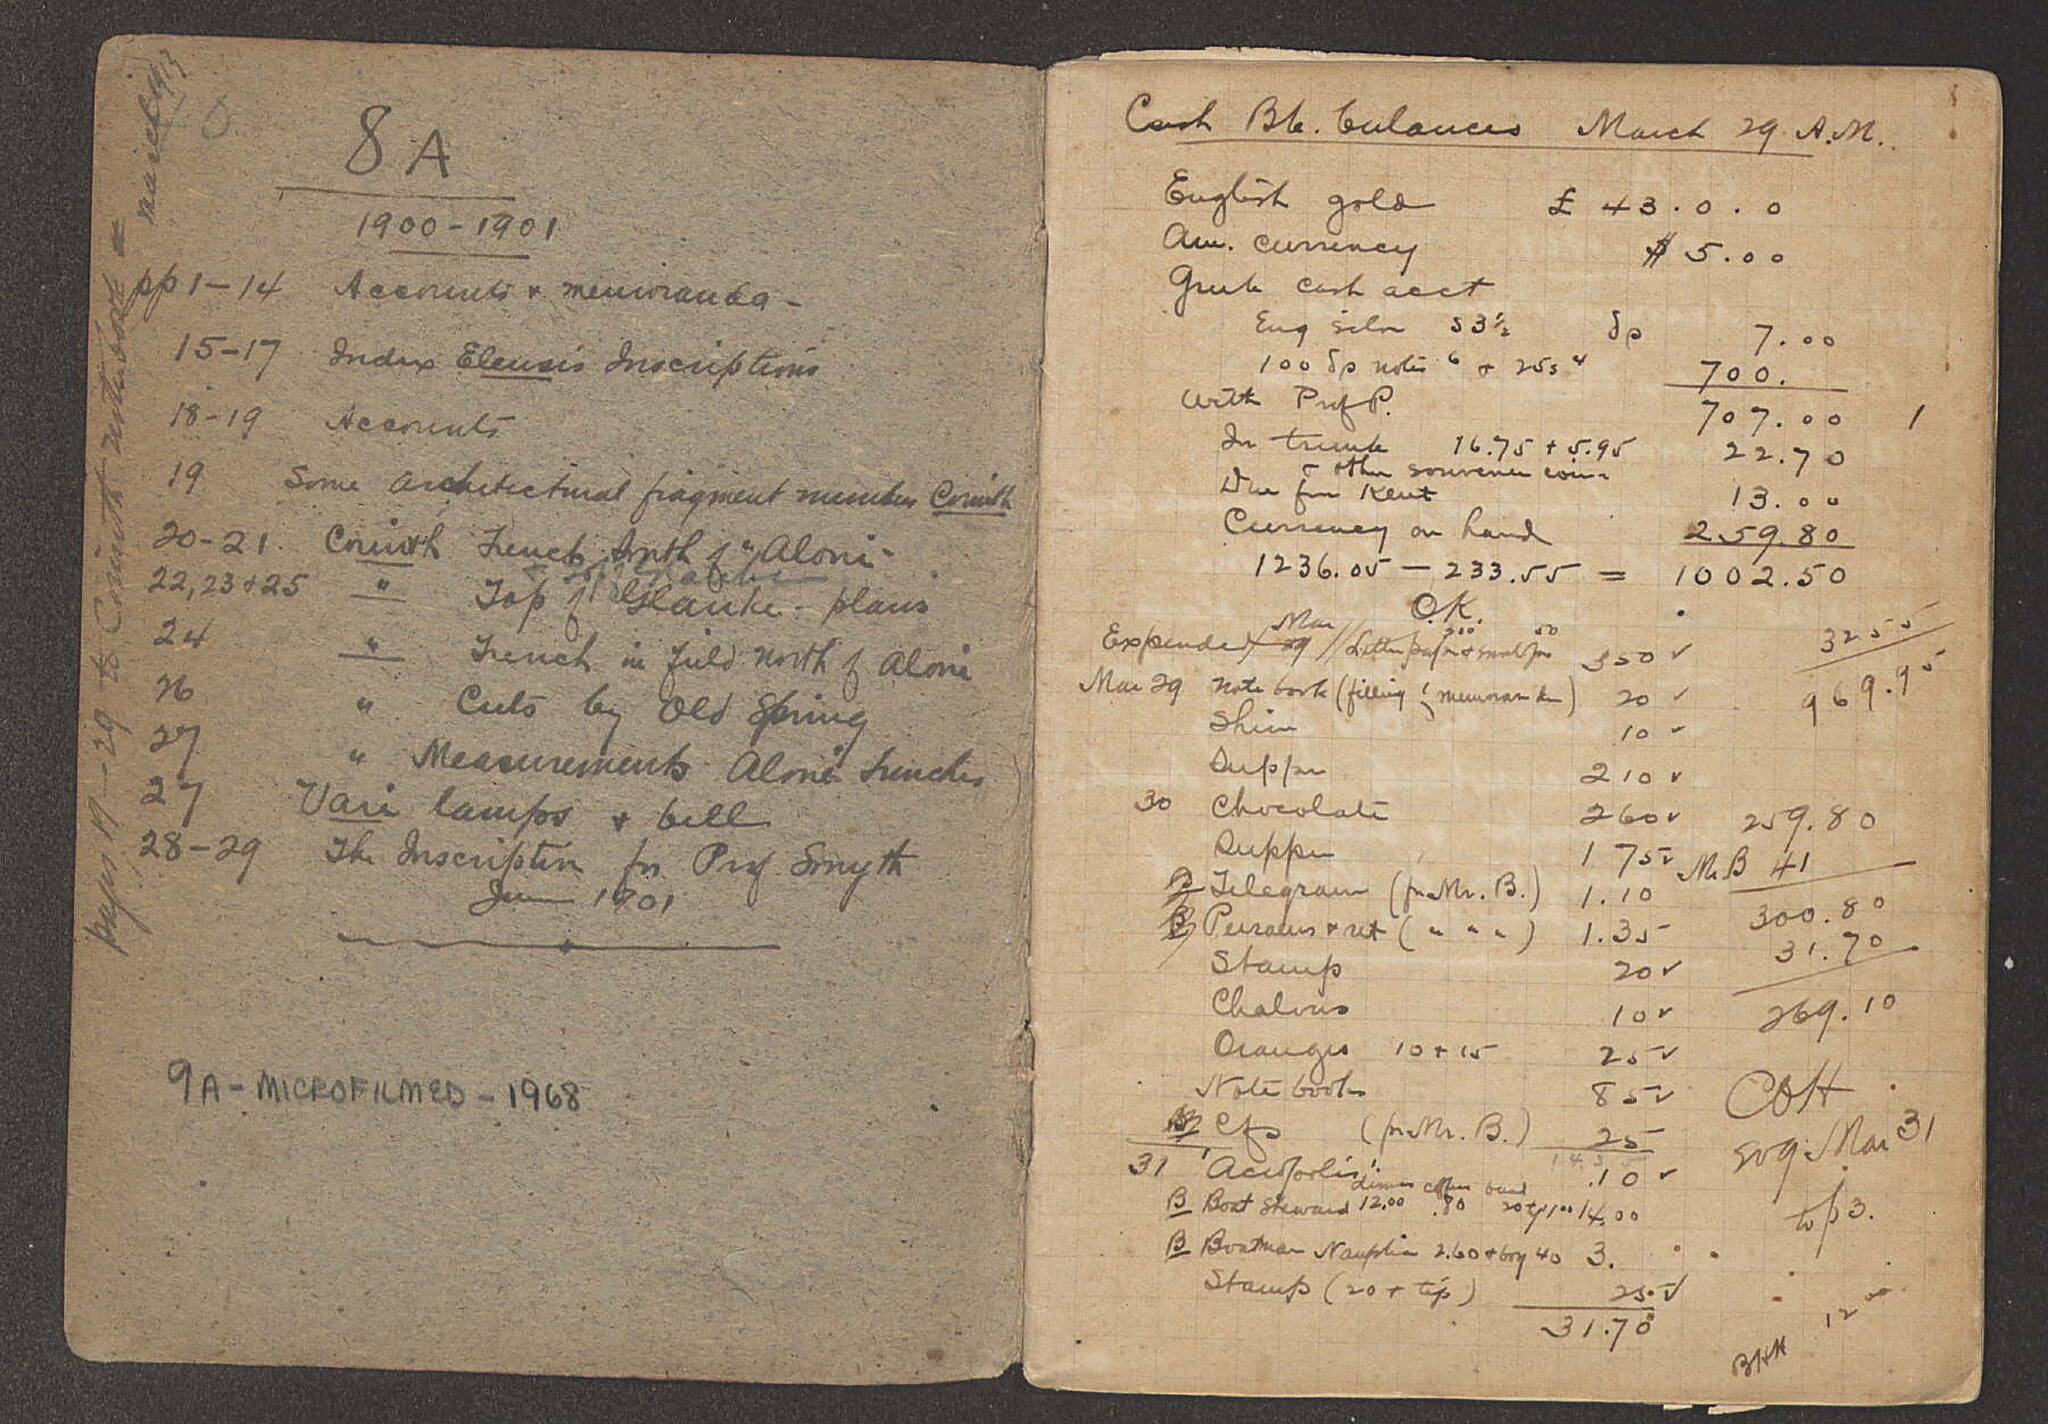 8A
1900-1901
pp 1-14 Accounts + memoranda -
15-17 Index Eleusis Inscriptions
18-19 Accounts
19 Some architectural fragment numbers Corinth
20-21. Corinth Trench South of "Aloni"
22, 23 + 25 " Top of Glauke - plans
24 " Trench in field north of Aloni
26 " Cuts by Old Spring
27 " Measurements Aloni trenches
27 Vari lamps + bell
28-29 The Inscription for Prof Smyth
June 1901
pages 19-29 to Corinth notebook
9A - MICROFILMED - 1968
Cash Bk. balances March 29 A.M.
English gold £ 43.0.0
Am. currency $ 5.00
Greek cash acct
Eng silv s 3½ δρ 7.00
100 δρ notes 6 + 25s 4 700.
With Prof P. 707.00 1
In trunk 16.75 + 5.95 22.70
+ other souvenir coin
Due fm Kent 13.00
Currency on hand 259.80
1236.05 - 233.55 = 1002.50
O.K.
Expended Mar 29 Letter paper 350 ✓
3255
Mar 29 Note book (filling & memoranda) 20 ✓
969.95
Shine 10 ✓
Supper 210 ✓
30 Chocolate 260 ✓
259.80
Supper 175 ✓
Mr B 41
Telegram (fm Mr. B.) 1.10
300.80
B Piraeus + ret ( " " " ) 1.35
31.70
Stamp 20 ✓
269.10
10 ✓
Oranges 10 + 15 25 ✓
Note books 85 ✓
COH
(fm Mr. B.) 25
Mar 31
31 'Acropolis' .10 ✓
top 3.
dinner coffee
B Boat Steward 12.00 .80 14.00
B Boatman Nauplia 2.60 + boy 40 3.
Stamp (20 + tip) 25 ✓
31.70
12 00
BHH